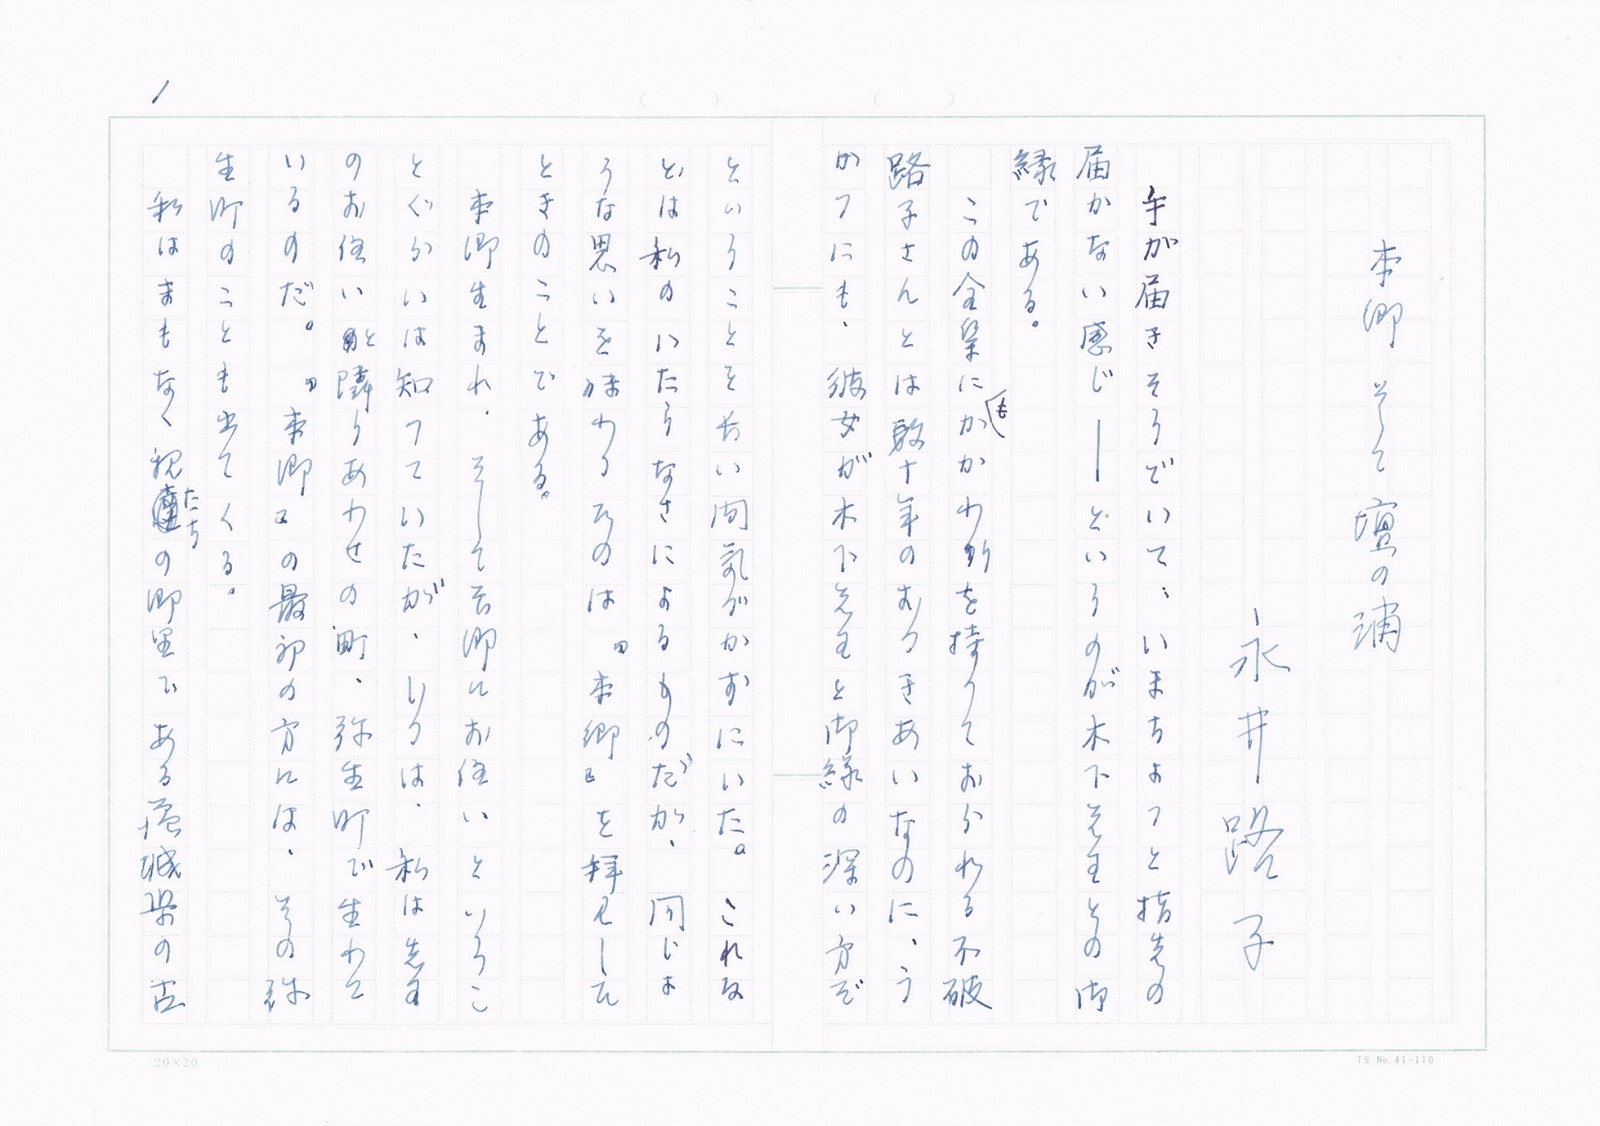 1
本郷 そして 壇の浦
永井路子
手が届きそうでいて、いまちょっと指先の
届かない感じ――というのが木下先生との御
縁である。
この全集にもかかわりを持っておられる不破
路子さんとは数十年のおつきあいなのに、う
かつにも、彼女が木下先生と御縁の深い方だ
ということを長い間気がかずにいた。これな
どは私のいたらなさによるものだが、同じよ
うな思いを味わったのは『本郷』を拝見した
ときのことである。
本郷生まれ、そして本郷にお住いというこ
とぐらいは知っていたが、じつは、私は先生
のお住いと隣りあわせの町、弥生町で生れて
いるのだ。『本郷』の最初の方には、その弥
生町のことも出てくる。
私はまもなく親たちの郷里である茨城県の古
20×20
TS No. 41-110